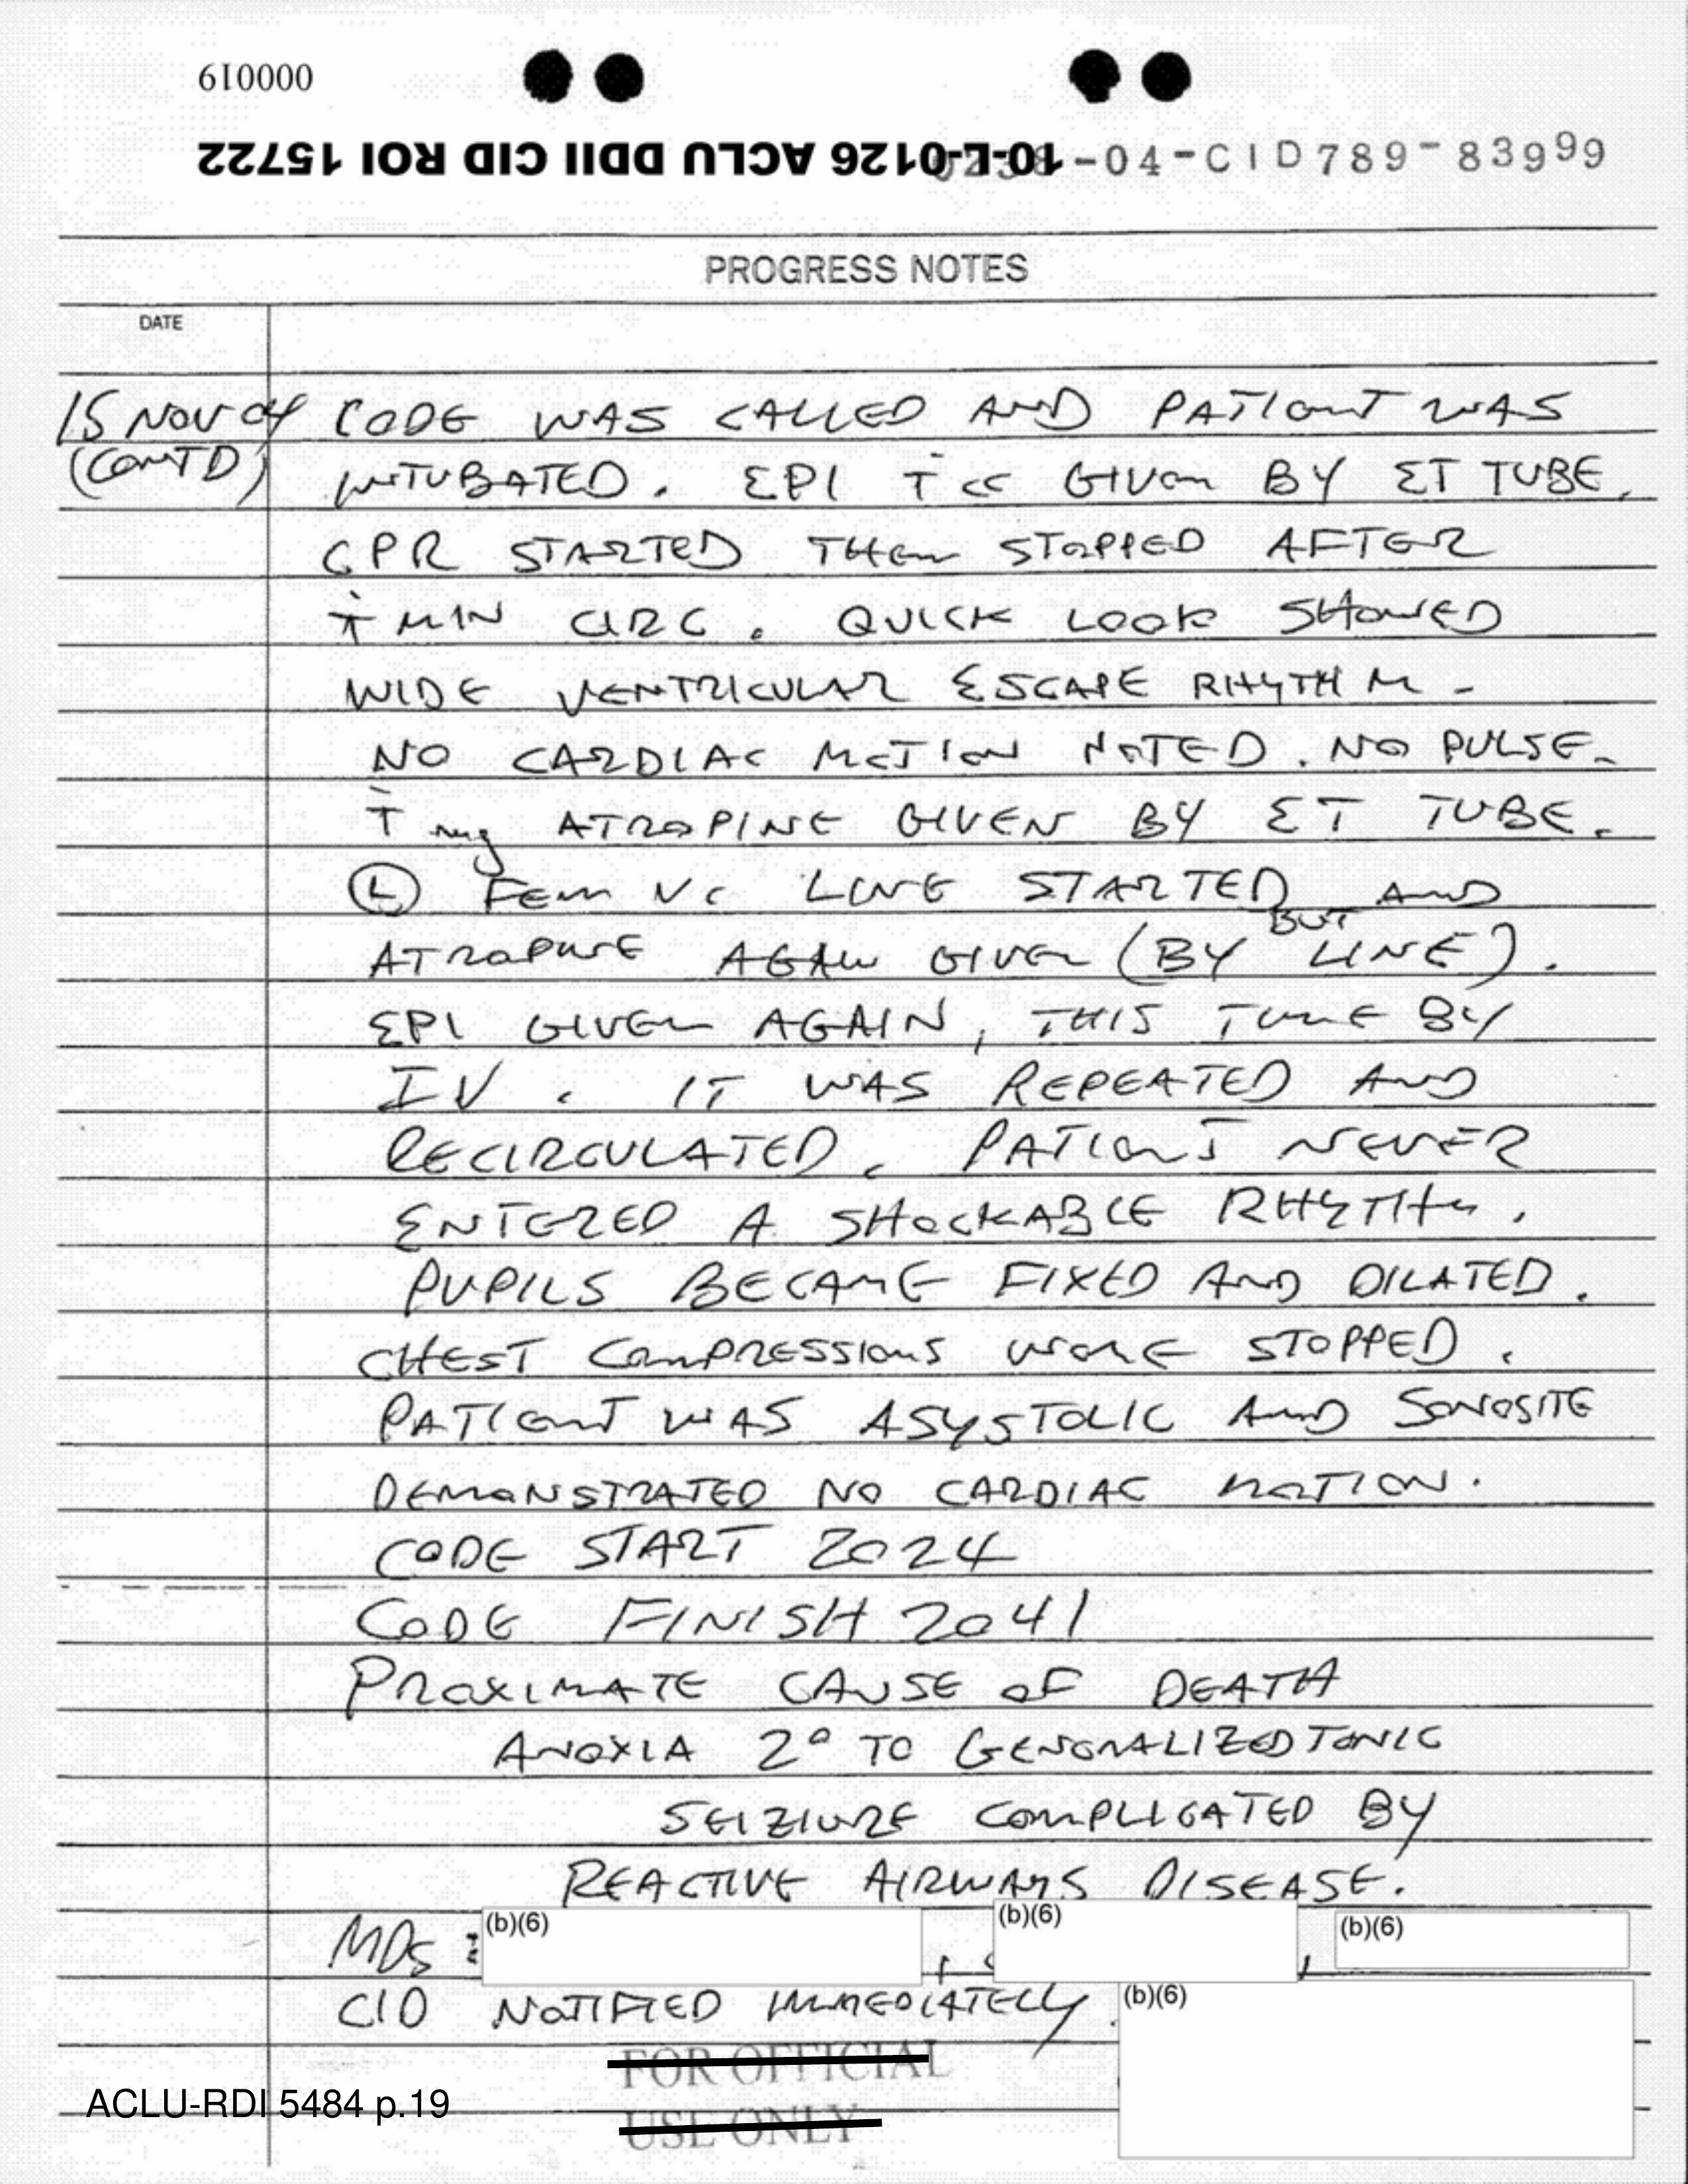 000019
10-L-0126 ACLU DDII CID ROI 15722
-04-CID789-83999
PROGRESS NOTES
DATE
15 NOV 04 CODE WAS CALLED AND PATIENT WAS
(CONTD) INTUBATED. EPI T̄ cc GIVEN BY ET TUBE.
CPR STARTED THEN STOPPED AFTER
T̄ MIN CIRC. QUICK LOOK SHOWED
WIDE VENTRICULAR ESCAPE RHYTHM -
NO CARDIAC MOTION NOTED. NO PULSE.
T̄ mg ATROPINE GIVEN BY ET TUBE.
Ⓛ FEM LINE STARTED AND
BUT
ATROPINE AGAIN GIVEN (BY LINE).
EPI GIVEN AGAIN, THIS TIME BY
IV. IT WAS REPEATED AND
RECIRCULATED. PATIENT NEVER
ENTERED A SHOCKABLE RHYTHM.
PUPILS BECAME FIXED AND DILATED.
CHEST COMPRESSIONS WERE STOPPED.
PATIENT WAS ASYSTOLIC AND SONOSITE
DEMONSTRATED NO CARDIAC MOTION.
CODE START 2024
CODE FINISH 2041
PROXIMATE CAUSE OF DEATH
ANOXIA 2° TO GENERALIZED TONIC
SEIZIURE COMPLICATED BY
REACTIVE AIRWAYS DISEASE.
MDs: (b)(6) , (b)(6) , (b)(6)
CID NOTIFIED IMMEDIATELY. (b)(6)
FOR OFFICIAL
USE ONLY
ACLU-RDI 5484 p.19